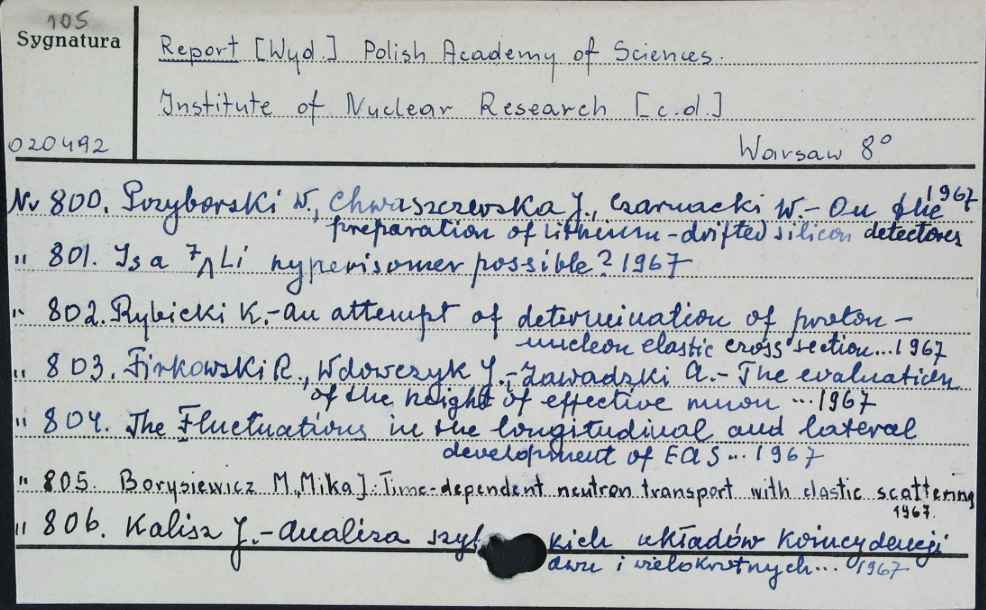 105
Sygnatura
Report [Wyd.] Polish Academy of Sciences.
Institute of Nuclear Research [c.d.]
020492
Warsaw 8°
Nr 800. Przyborski W., Chwaszczewska J., Czarnacki W. - On the 1967
preparation of lithium-drifted silicon detectores
" 801. Is a ⁷ΛLi hyperisomer possible? 1967
" 802. Rybicki K. - An attempt of determination of proton -
nucleon elastic cross section... 1967
" 803. Firkowski R., Wdowczyk J., - Zawadzki A. - The evaluation
of the height of effective muon ... 1967
" 804. The Fluctuations in the longitudinal and lateral
development of EAS ... 1967
" 805. Borysiewicz M., Mika J. Time-dependent neutron transport with elastic scattering
1967.
" 806. Kalisz J. - Analiza szyb kich układów koincydencji
dwu i wielokrotnych... 1967